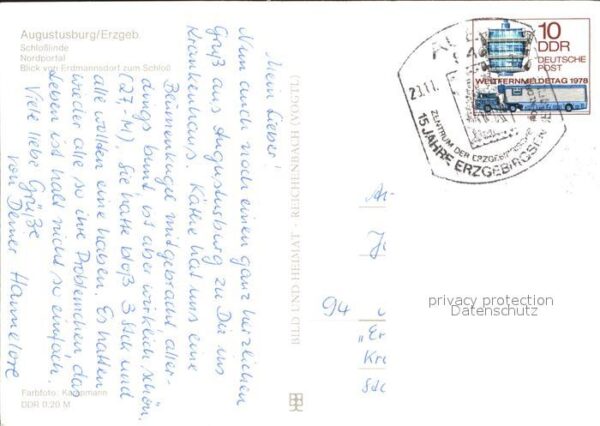 Augustusburg/Erzgeb.
Schloßlinde
Nordportal
Blick von Erdmannsdorf zum Schloß
Mein Lieber!
Nun auch noch einen ganz herzlichen
Gruß aus Augustusburg zu Dir ins
Krankenhaus. Käthe hat uns eine
Bäumenkugel mitgebracht aller-
dings bunt ist aber wirklich schön.
(27,-M). Sie hatte bloß 3 Stck und
alle wollten eine haben. Es hatten
wieder alle so ihre Problemchen, das
Leben ist halt nicht so einfach.
Viele liebe Grüße
von Deiner Hannelore
Farbfoto: Kampmann
DDR 0,20 M
BILD UND HEIMAT · REICHENBACH (VOGTL)
10
DDR
DEUTSCHE
POST
WELTFERNMELDETAG 1978
23.11.
ZENTRUM DER ERZGEBIRGISCHEN
15 JAHRE ERZGEBIRGSEN
94
privacy protection
Datenschutz
„Er
Kr